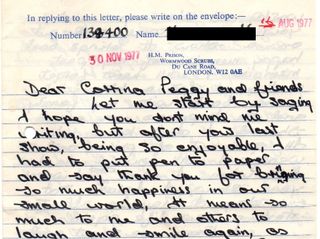 In replying to this letter, please write on the envelope:—
Number 138400 Name
AUG 1977
30 NOV 1977
H.M. PRISON,
WORMWOOD SCRUBS,
DU CANE ROAD,
LONDON. W12 0AE
Dear Peggy and friends
Let me start by saying
I hope you dont mind me
writing, but after your last
show, being so enjoyable, I
had to put pen to paper
and say thank you for bringing
so much happiness in our
small world, It means so
much to me and others to
laugh and smile again, as